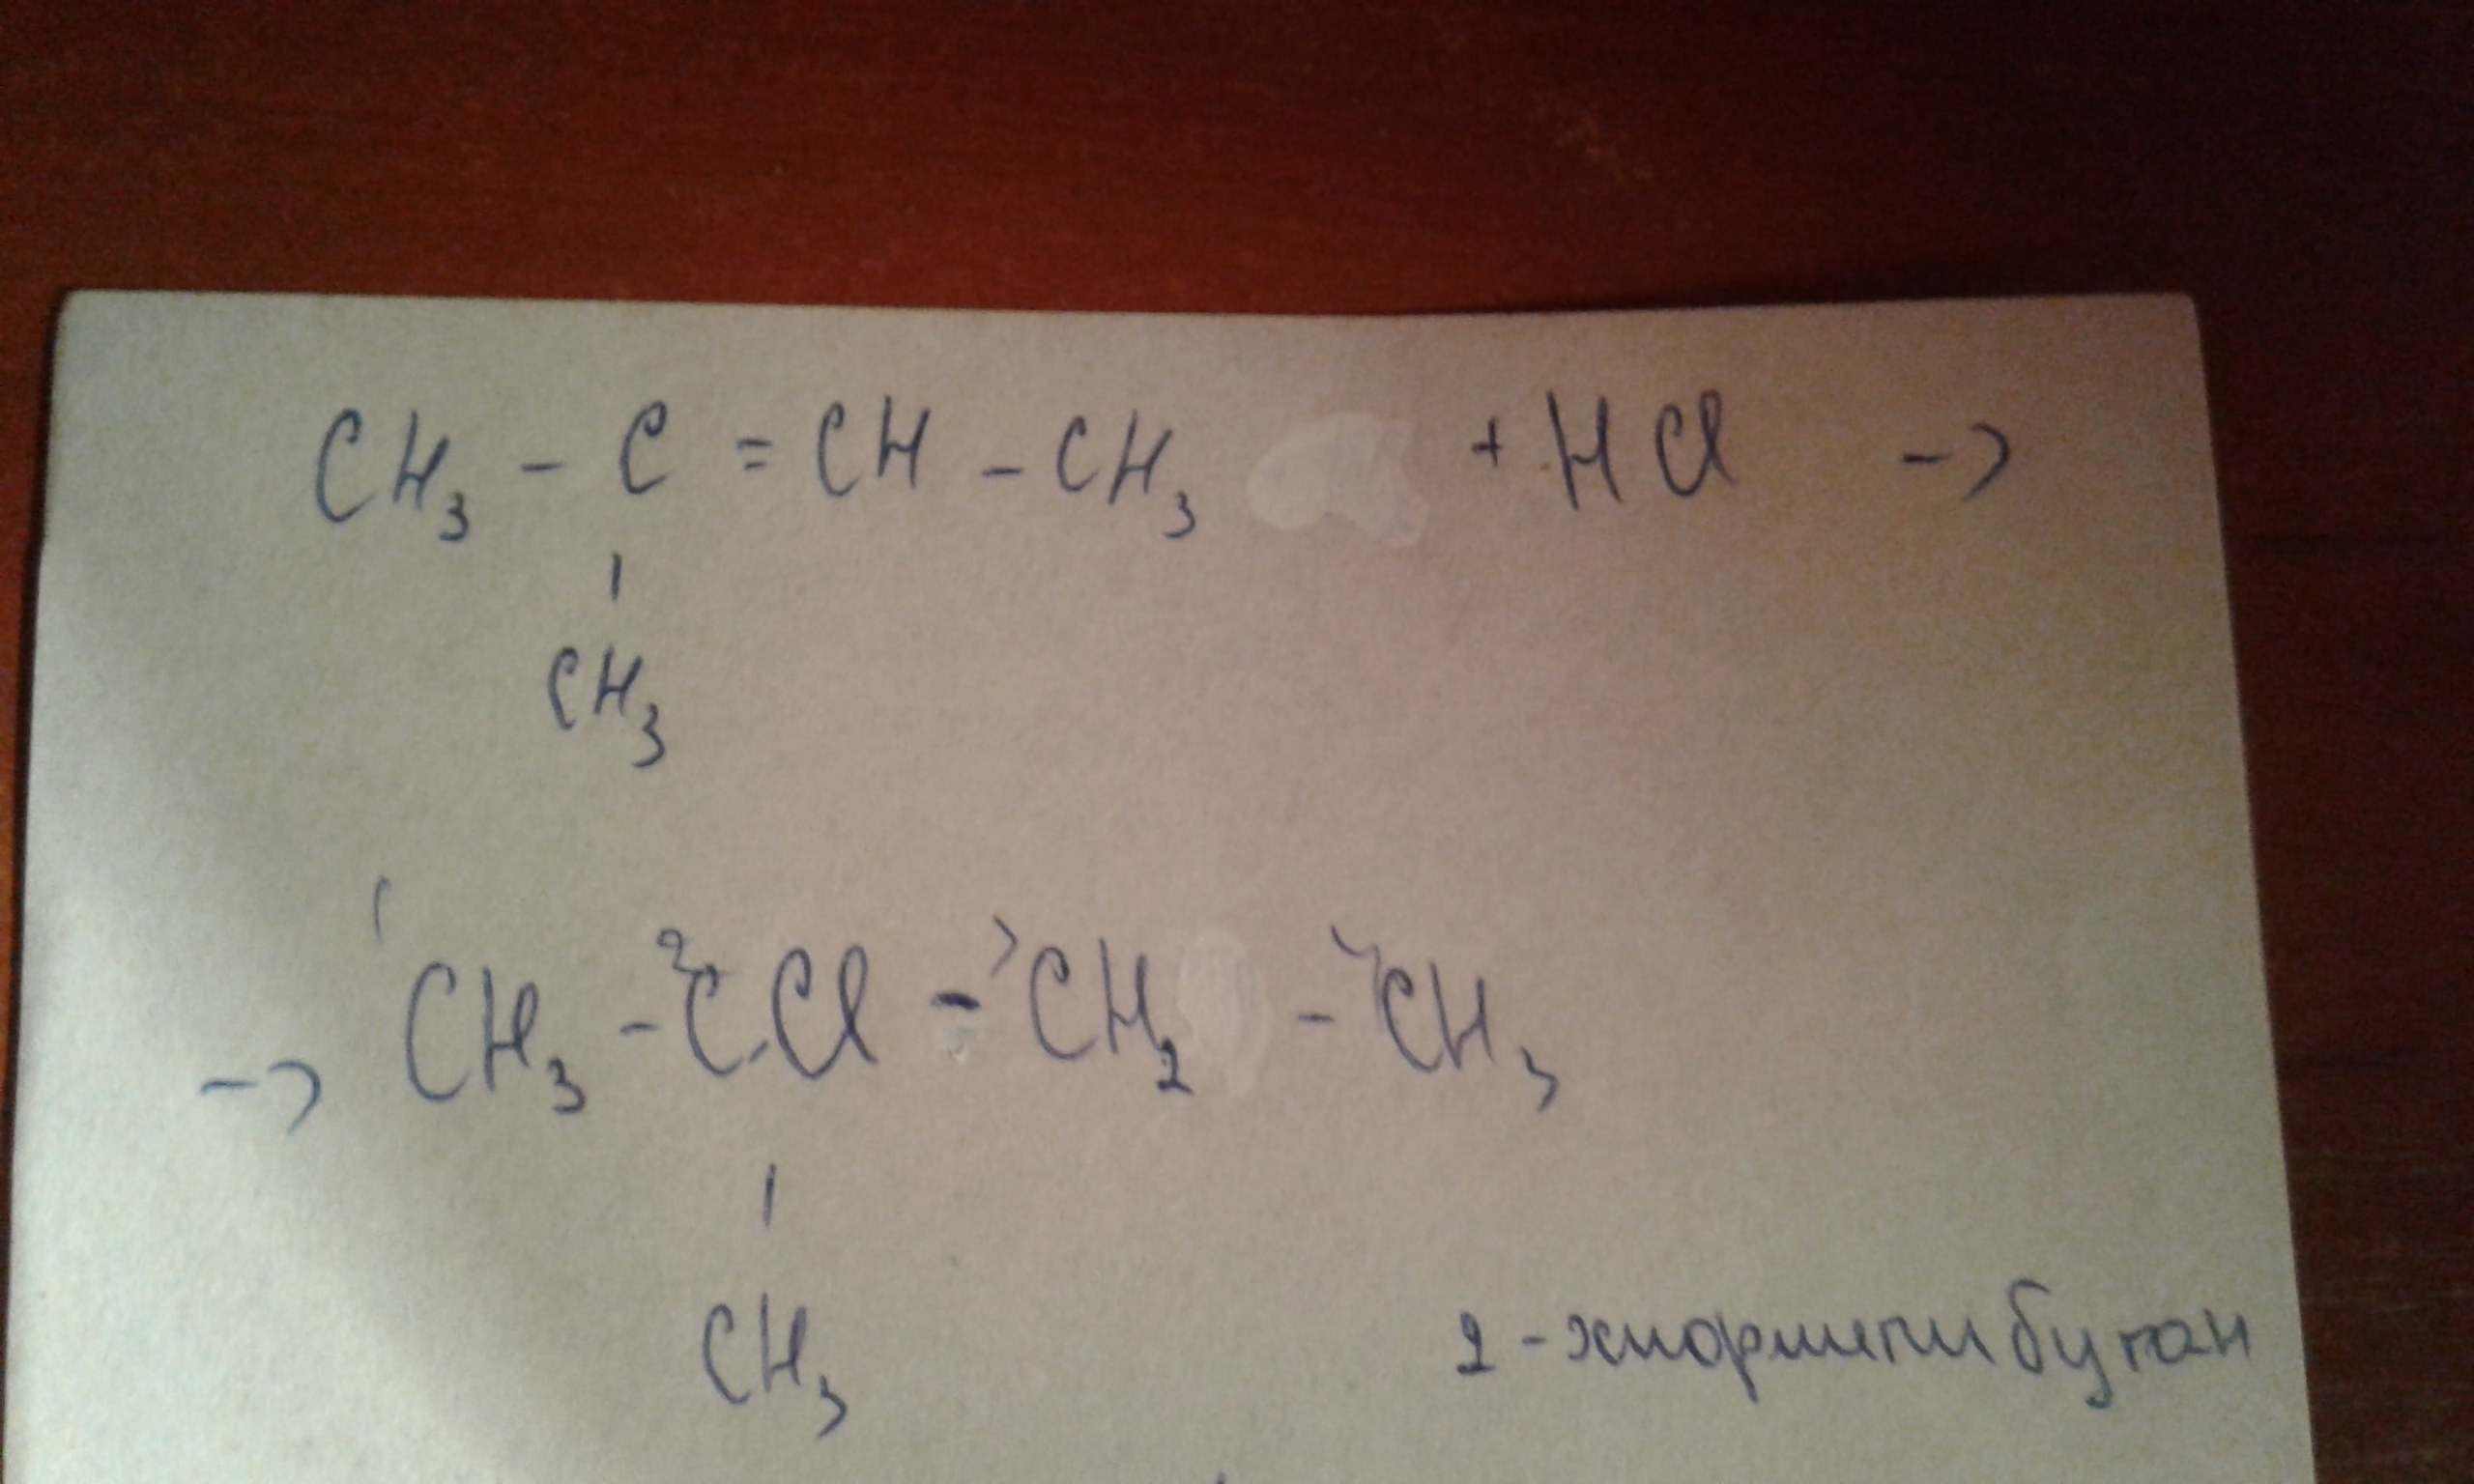 CH₃ - C = CH - CH₃ + HCl ->
CH₃
-> ¹CH₃ - ²CCl - ³CH₂ - ⁴CH₃
CH₃
2 - хлорметил бутан